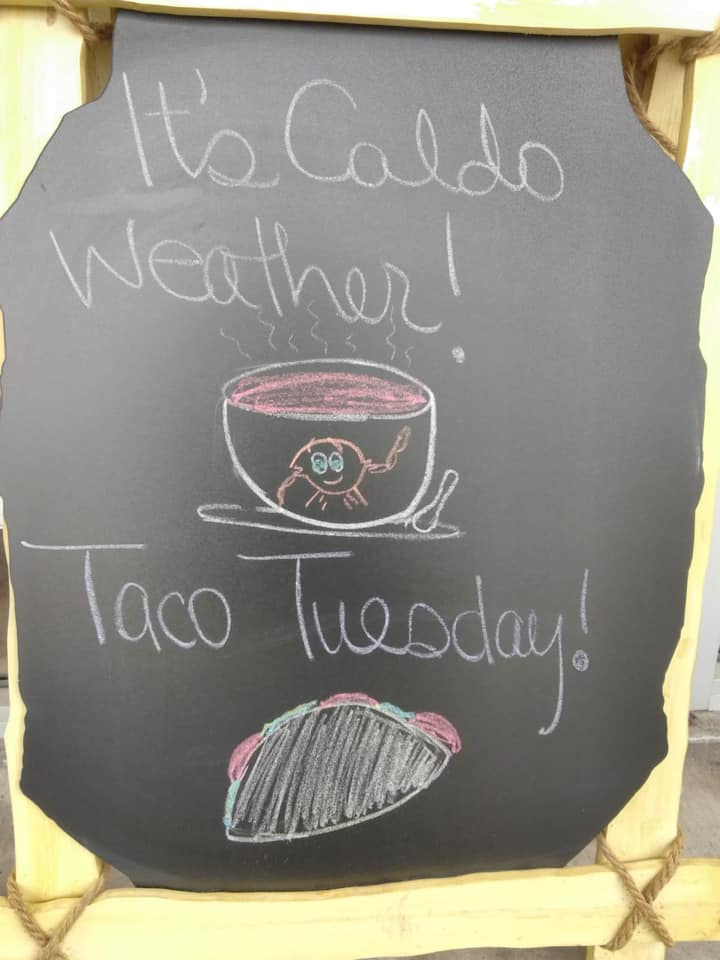 It's Caldo
Weather!
Taco Tuesday!